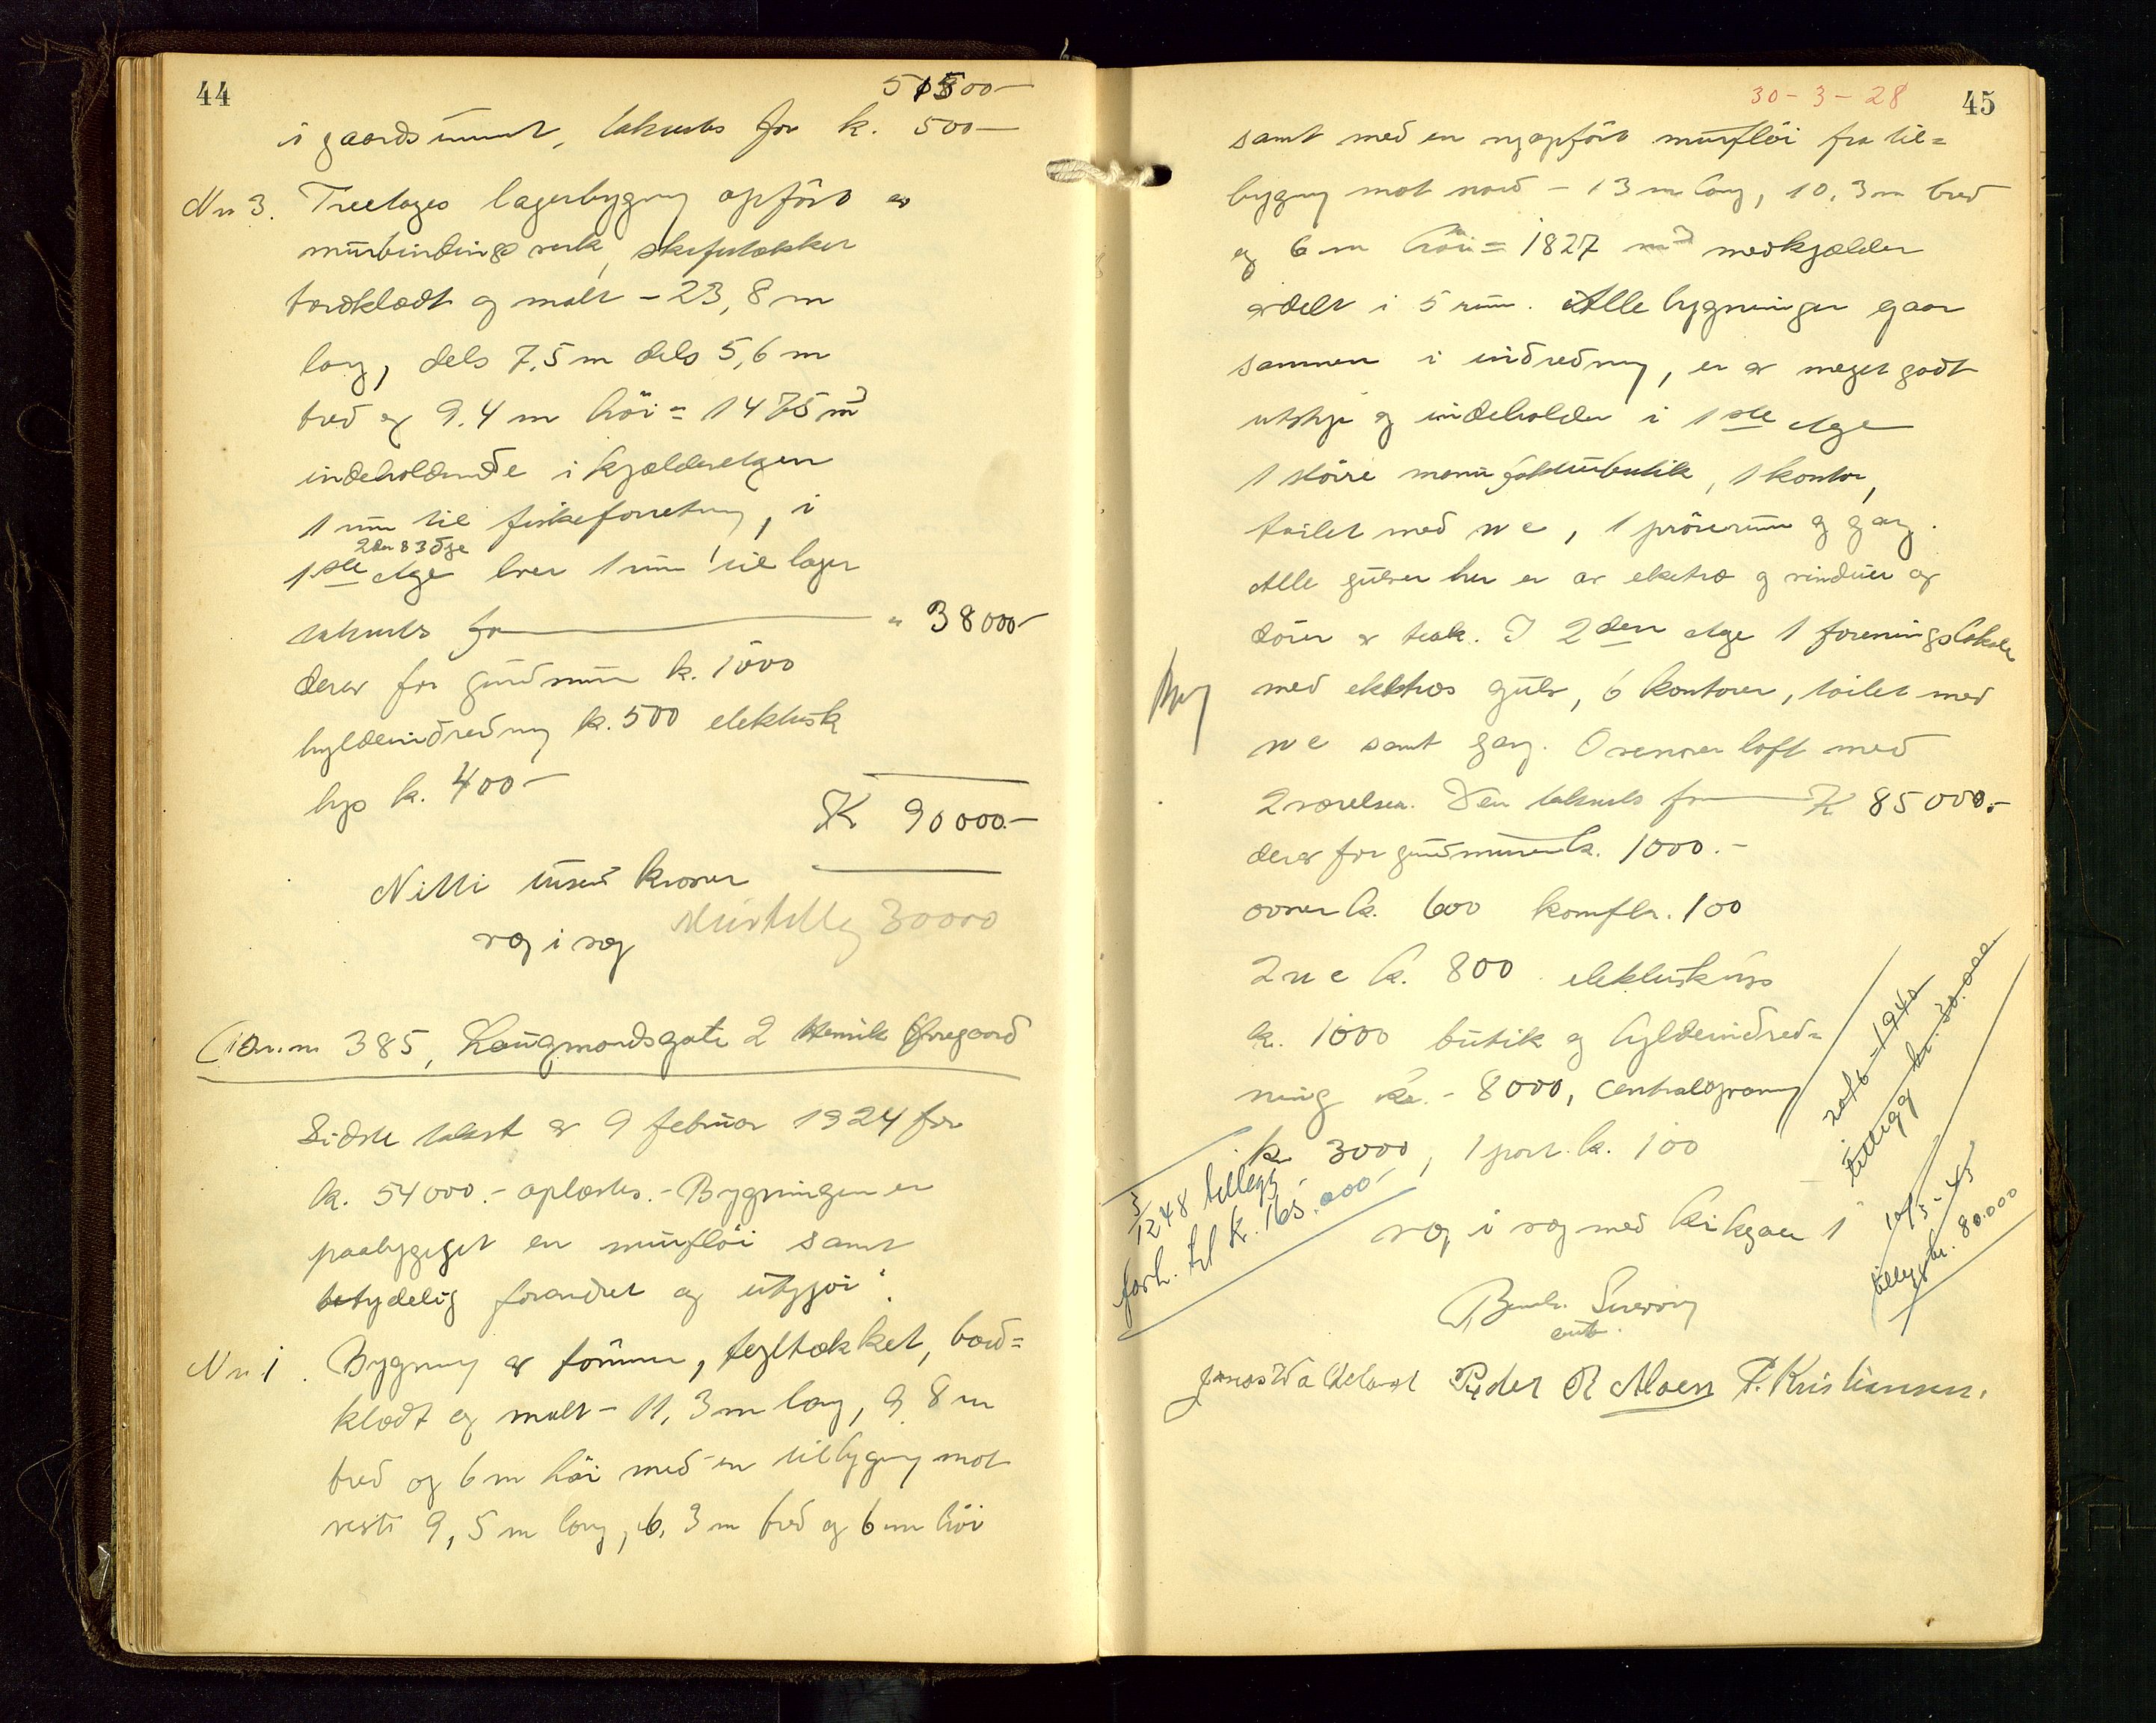 44
51500-
i gaardsrumet, takseres for k. 500-
Nr 3. Treetages lagerbygning opført av
murbindingsverk, skifertækket
bordklædt og malt - 23,8 m
lang, dels 7,5 m dels 5,6 m
bred og 9.4 m høi = 1475 m3
indeholdende i kjælderetagen
1 rum til fiskeforretning, i
2den & 3dje
1ste etage hver 1 rum til lager
takseres for " 38000-
derav for grundmur k. 1000
hyldeindredning k. 500 elektrisk
lys k. 400-
K 90000.-
Nitti tusend kroner
væg i væg Murtillæg 30000
Br.nr. 385, Haugmandsgate 2 Henrik Øvregaard
Sidste takst av 9 februar 1924 for
k. 54000.- oplæstes.- Bygningen er
paabygget en murfløi samt
betydelig forandret og utgjør:
Nr 1. Bygning av tømmer, tegltækket, bord=
klædt og malt - 11,3 m lang, 9,8 m
bred og 6 m høi med en tilbygning mot
vest 9,5 m lang, 6,3 m bred og 6 m høi
30-3-28 45
samt med en nyopført murfløi fra til=
bygning mot nord - 13 m lang, 10,3 m bred
og 6 m høi = 1827 m3 med kjælder
avdelt i 5 rum. Alle bygninger gaar
sammen i indredning, er av meget godt
utstyr og indeholder i 1ste etage
1 større manufakturbutik, 1 kontor,
toilet med wc, 1 prøverum og gang.
Alle gulver her er av eketræ og vinduer og
dører av teak. I 2den etage 1 foreningslokale
med eketræs gulv, 6 kontorer, toilet med
wc samt gang. Ovenover loft med
2 værelser. Den takseres for K 85000.-
derav for grundmuren k. 1000.-
ovner k. 600 komfyr. 100
2 wc k. 800 elektrisk lys
k. 1000 butik og hyldeindred=
ning kr. - 8000, centralopvarmning
k. 3000, 1 port k. 100
væg i væg med
3/12 48 tillegg
forh. til k. 165.000-
20/6-1940
tillegg kr. 30.000
10/5-43
tillegg kr. 80.000
Jonas Vadeland Peder R Moen P. Kristiansen.